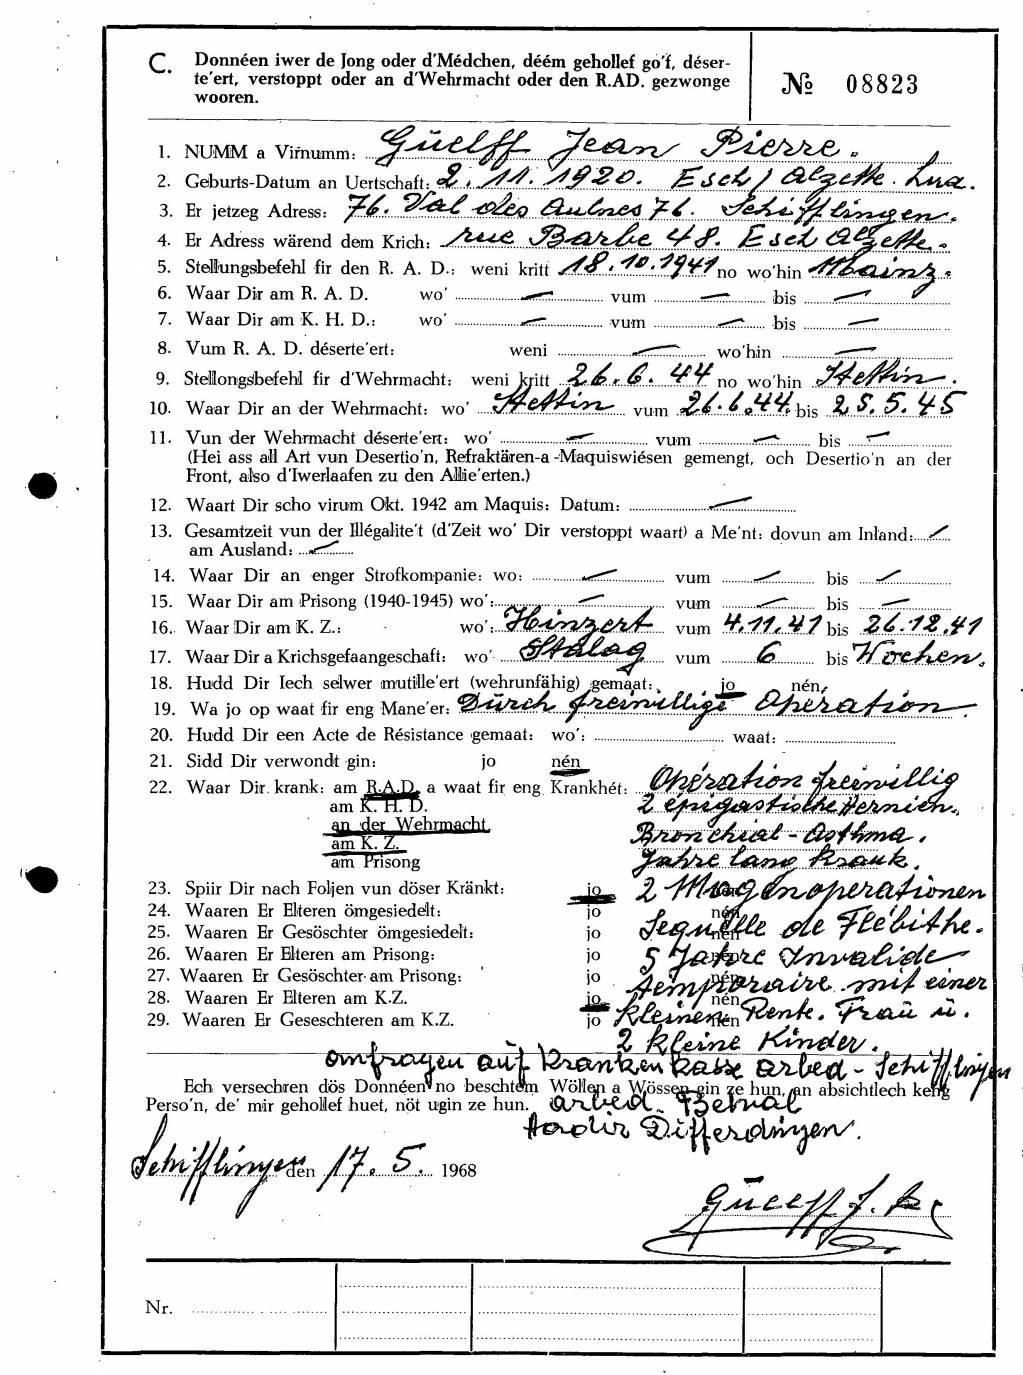 C. Donnéen iwer de Jong oder d'Médchen, déém gehollef go'f, déser-
te'ert, verstoppt oder an d'Wehrmacht oder den R.AD. gezwonge
wooren.
№ 08823
1. NUMM a Virnumm: Güelff Jean Pierre.
2. Geburts-Datum an Uertschaft: 2. 11. 1920. Esch / Alzette. Lux.
3. Er jetzeg Adress: 76. Val des Aulnes 76. Schifflingen.
4. Er Adress wärend dem Krich: rue Barbe 48. Esch Alzette.
5. Stellungsbefehl fir den R. A. D.: weni kritt 18.10.1941 no wo'hin Mainz.
6. Waar Dir am R. A. D. wo' — vum — bis —
7. Waar Dir am K. H. D.: wo' — vum — bis —
8. Vum R. A. D. déserte'ert: weni — wo'hin —
9. Stellongsbefehl fir d'Wehrmacht: weni kritt 26.6.44 no wo'hin Stettin.
10. Waar Dir an der Wehrmacht: wo' Stettin vum 26.6.44. bis 25.5.45
11. Vun der Wehrmacht déserte'ert: wo' — vum — bis —
(Hei ass all Art vun Desertio'n, Refraktären-a-Maquiswiésen gemengt, och Desertio'n an der
Front, also d'Iwerlaafen zu den Allie'erten.)
12. Waart Dir scho virum Okt. 1942 am Maquis: Datum: —
13. Gesamtzeit vun der Illégalite't (d'Zeit wo' Dir verstoppt waart) a Me'nt: dovun am Inland: —
am Ausland: —
14. Waar Dir an enger Strofkompanie: wo: — vum — bis —
15. Waar Dir am Prisong (1940-1945) wo': — vum — bis —
16. Waar Dir am K. Z.: wo': Hinzert vum 4.11.41 bis 26.12.41
17. Waar Dir a Krichsgefaangeschaft: wo' Stalag vum 6 bis Wochen.
18. Hudd Dir Iech selwer mutille'ert (wehrunfähig) gemaat: jo nén,
19. Wa jo op waat fir eng Mane'er: Dürch freiwillige Opération.
20. Hudd Dir een Acte de Résistance gemaat: wo': waat:
21. Sidd Dir verwondt gin: jo nén
22. Waar Dir krank: am R.A.D. a waat fir eng Krankhét: Opération freiwillig
am K. H. D. 2 épigastische Hernien.
an der Wehrmacht Bronchial-Asthma.
am K. Z. Jahre lang krank.
am Prisong
23. Spiir Dir nach Foljen vun döser Kränkt: jo 2 Magenoperationen
24. Waaren Er Elteren ömgesiedelt: jo nén
25. Waaren Er Gesöschter ömgesiedelt: jo nén Sequelle de Flébithe.
26. Waaren Er Elteren am Prisong: jo nén 5 Jahre Invalide
27. Waaren Er Gesöschter am Prisong: jo nén temporaire mit einer
28. Waaren Er Elteren am K.Z. jo nén
29. Waaren Er Geseschteren am K.Z. jo nén kleinen Rente. Frau ü.
2 kleine Kinder.
omfragen auf Krankenkasse Arbed-Schifflingen
Ech versechren dös Donnéen no beschtem Wöllen a Wössen gin ze hun, an absichtlech keng
Perso'n, de' mir gehollef huet, nöt ugin ze hun. Arbed Belval
Hadir Differdingen.
Schifflingen den 17.5. 1968
Güelff J. P.
Nr.